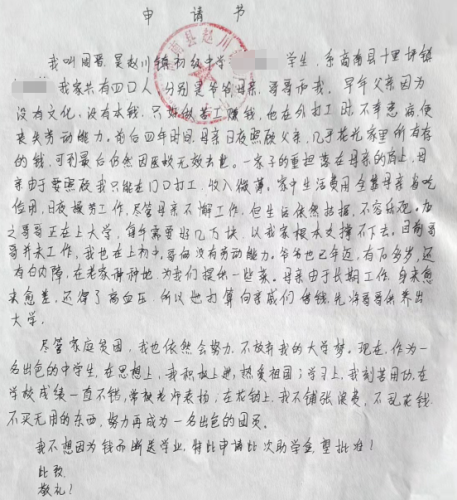 申请书
我叫周磊，是赵川镇初级中学 学生，系商南县十里坪镇
我家共有四口人，分别是爷爷母亲，哥哥和我。早年父亲因为
没有文化，没有本钱，只能做苦工赚钱，他在外打工时不幸患病便
丧失劳动能力。前后四年时间，母亲日夜照破父亲，几乎花光家里所有存
的钱，可到最后仍然因医救无放去世。一家子的重担落在母亲的肩上，母
亲由于要照破我只能在门口打工，收入微薄。家中生活费用全靠母亲省吃
俭用，日夜操劳工作，尽管母亲不懈工作，但生活依然拮据，不容乐观。加
之哥哥正在上大学，每年需要好几万块，以我家根本支撑不下去。目前哥
哥并未工作，我也在上初中，哥俩没有劳动能力。爷爷也已年近，有70多岁，还
有白内障，在老家种种地，为我们提供一些菜。母亲由于长期工作，身来愈
来愈差，还得了高血压，所以她打算向亲戚们借钱，先将哥哥供养出
大学。
尽管家庭贫困，我也依然会努力，不放弃我的大学梦，现在，作为一
名出色的中学生，在思想上，我积极上进，热爱祖国；学习上，我刻苦用功，在
学校成绩一直不错，常被老师表扬；在花销上，我不铺张浪费，不乱花钱
不买无用的东西，努力再成为一名出色的团员。
我不想因为钱而断送学业，特此申请此次助学金，望批准！
此致
敬礼！